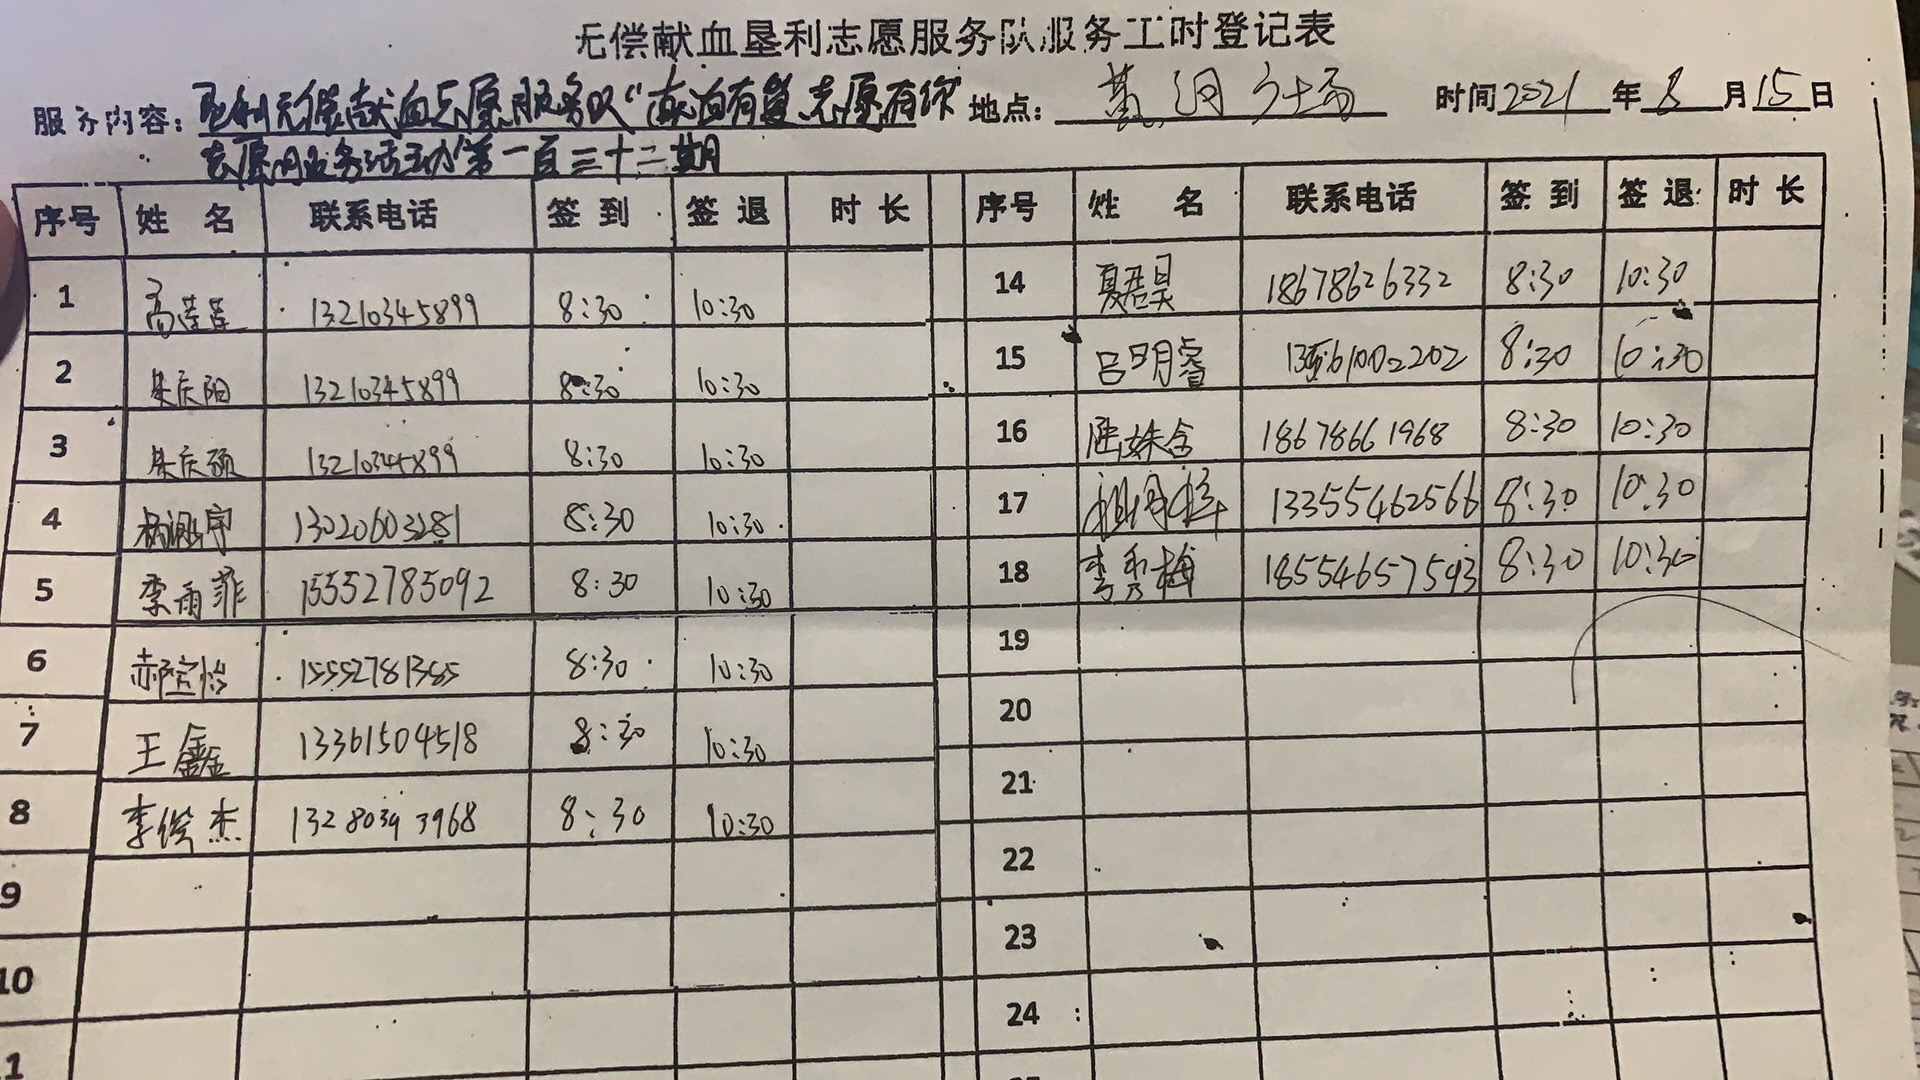 无偿献血垦利志愿服务队服务工时登记表
服务内容：垦利无偿献血志愿服务队“献血有益 志愿有你” 地点：黄河广场 时间2021年8月15日
志愿服务活动第一百三十二期
序号 姓名 联系电话 签到 签退 时长 序号 姓名 联系电话 签到 签退 时长
1 高莲莲 13210345899 8:30 10:30 14 夏君昊 18678626332 8:30 10:30
2 庆阳 13210345899 8:30 10:30 15 吕明睿 8:30 10:30
3 庆硕 13210345899 8:30 10:30 16 陈姝含 18678661968 8:30 10:30
4 13020603281 8:30 10:30 17 13355462566 8:30 10:30
5 李雨菲 15552785092 8:30 10:30 18 李秀梅 18554657593 8:30 10:30
6 郝宝怡 15552781385 8:30 10:30 19
7 王鑫 13361504518 8:30 10:30 20
8 李俊杰 13280343968 8:30 10:30 21
9 22
10 23
24